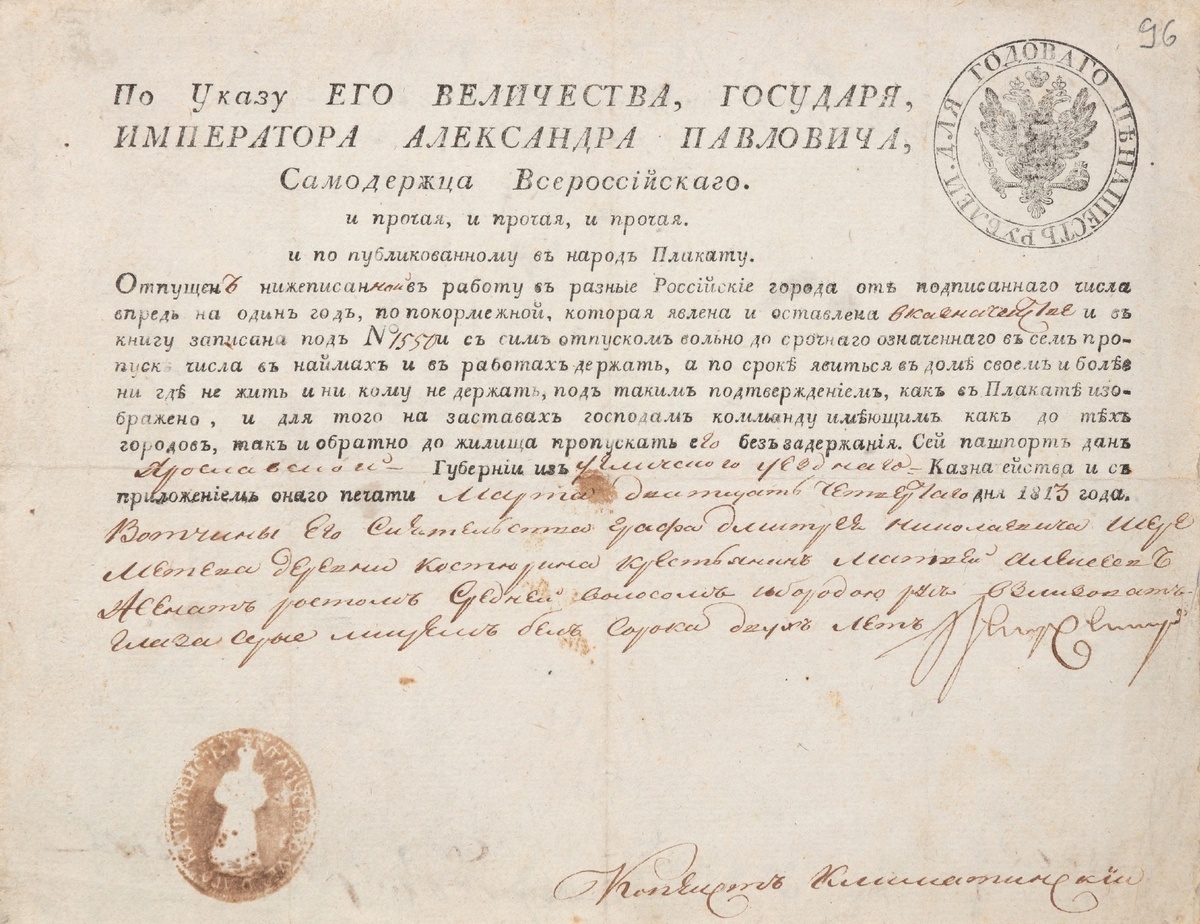 96
ДЛЯ ГОДОВАГО ПѢПА ШЕСТЬ РУБЛЕЙ.
По Указу ЕГО ВЕЛИЧЕСТВА, ГОСУДАРЯ,
ИМПЕРАТОРА АЛЕКСАНДРА ПАВЛОВИЧА,
Самодержца Всероссійскаго.
и прочая, и прочая, и прочая.
и по публикованному въ народъ Плакату.
Отпущенъ нижеписанной въ работу въ разные Россійскіе города отъ подписаннаго числа
впредь на одинъ годъ, по покормежной, которая явлена и оставлена в казначействе и въ
книгу записана подъ № 1550 и съ симъ отпускомъ вольно до срочнаго означеннаго въ семъ про-
пускѣ числа въ наймахъ и въ работахъ держать, а по срокѣ явиться въ домѣ своемъ и болѣе
ни гдѣ не жить и ни кому не держать, подъ такимъ подтвержденіемъ, какъ въ Плакатѣ изо-
бражено, и для того на заставахъ господамъ комманду имѣющимъ какъ до тѣхъ
городовъ, такъ и обратно до жилища пропускать его безъ задержанія. Сей пашпортъ данъ
Ярославской Губерніи изъ угличского уезднаго Казначейства и съ
приложеніемъ онаго печати Марта дватцать четвертаго дня 1813 года.
Вотчины Его Сиятельства графа дмитрея николаевича шере
метева деревни костюрина крестьянинъ матвей алексеевъ
женатъ ростомъ средней волосомъ и бородою русъ
глаза серые лицемъ белъ сорока двухъ летъ
Копеистъ Климатинскій